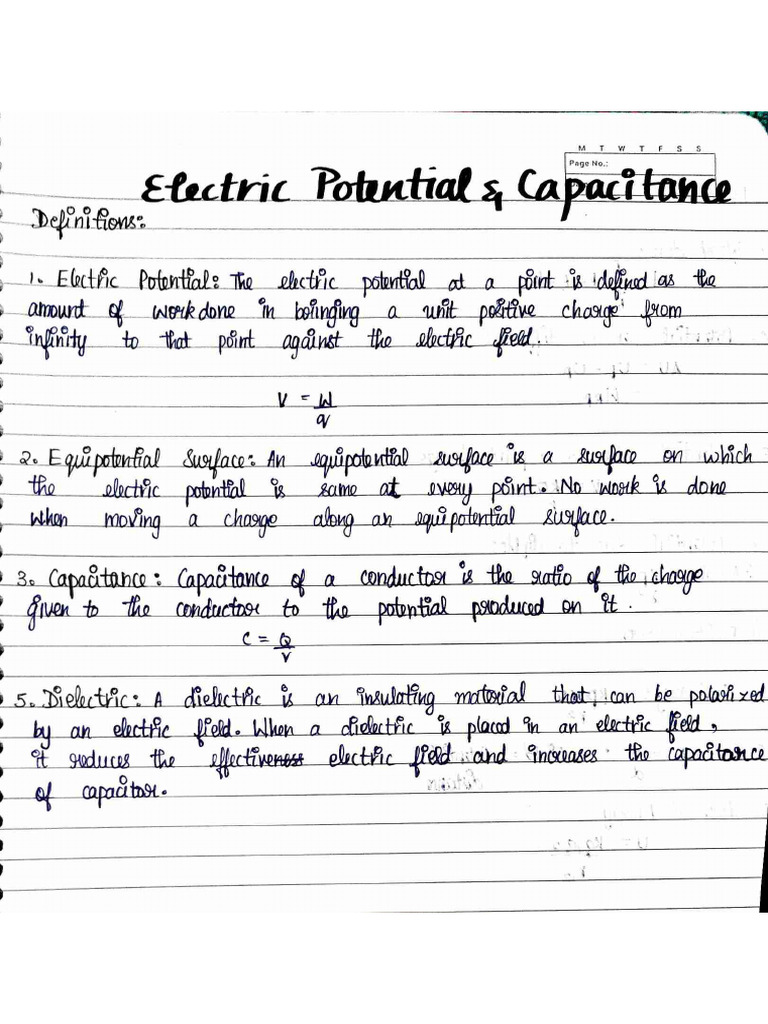 M T W T F S S
Page No.:
Electric Potential & Capacitance
Definitions:
1. Electric Potential: The electric potential at a point is defined as the
amount of work done in bringing a unit positive charge from
infinity to that point against the electric field.
V = W
q
2. Equipotential Surface: An equipotential surface is a surface on which
the electric potential is same at every point. No work is done
when moving a charge along an equipotential surface.
3. Capacitance: Capacitance of a conductor is the ratio of the charge
given to the conductor to the potential produced on it.
C = Q
V
5. Dielectric: A dielectric is an insulating material that can be polarized
by an electric field. When a dielectric is placed in an electric field,
it reduces the effective electric field and increases the capacitance
of capacitor.